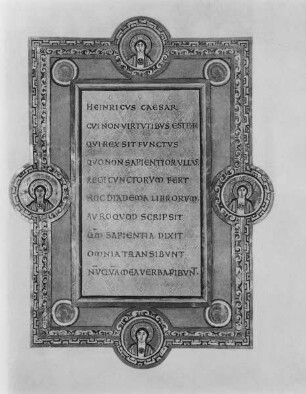 HEINRICVS CAESAR
CVI NON VIRTVTIBVS EST
QVI REX SIT FVNCTVS
QVO NON SAPIENTIOR VLLVS
REGI CVNCTORVM FERT
HOC DIADEMA LIBRORVM
AVRO QVOD SCRIPSIT
QM̄ SAPIENTIA DIXIT
OMNIA TRANSIBVNT
MEA VERBA PIBVNT